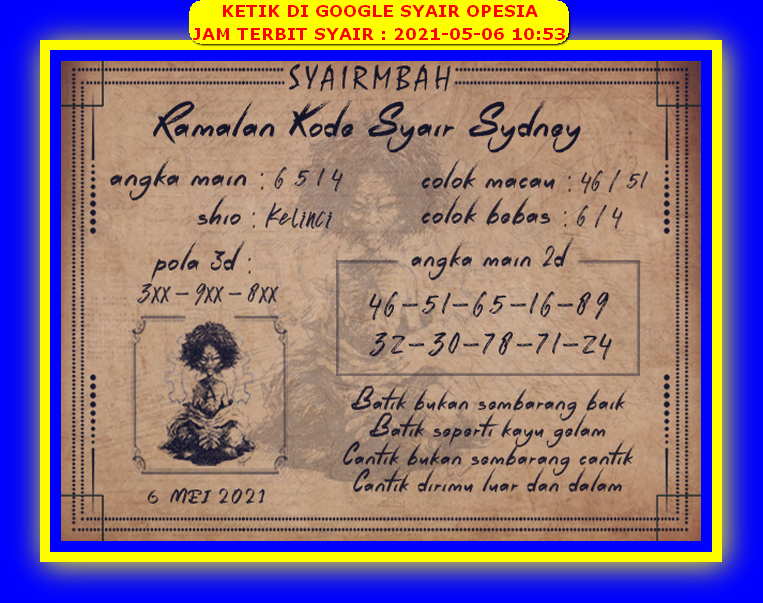 KETIK DI GOOGLE SYAIR OPESIA
JAM TERBIT SYAIR : 2021-05-06 10:53
SYAIRMBAH
Ramalan Kode Syair Sydney
angka main : 6 5 1 4
colok macau : 46 / 51
shio : Kelinci
colok bebas : 6 / 4
pola 3d :
3XX - 9XX - 8XX
angka main 2d
46-51-65-16-89
32-30-78-71-24
Batik bukan sembarang baik
Batik seperti kayu gelam
Cantik bukan sembarang cantik
Cantik dirimu luar dan dalam
6 MEI 2021